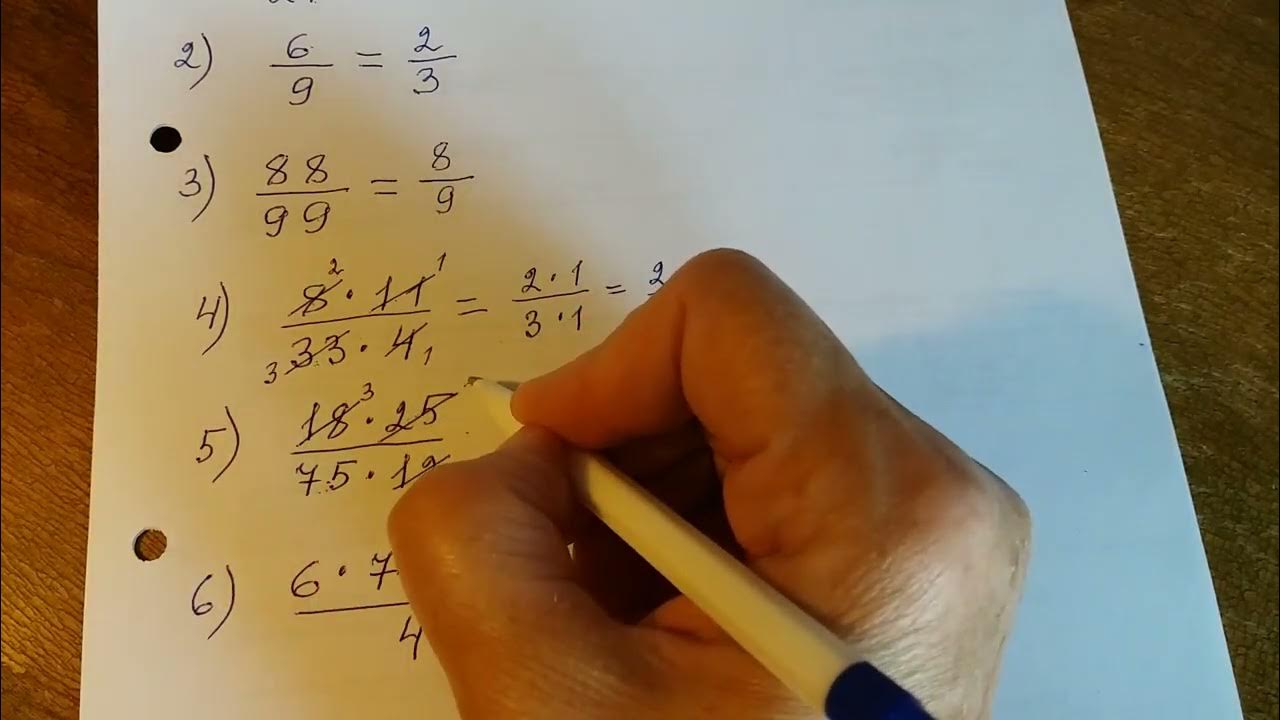 2) 6/9 = 2/3
3) 88/99 = 8/9
4) 8² · 11¹ / ₃33 · 4₁ = 2 · 1 / 3 · 1 = 2
5) 18³ · 25 / 75 · 12
6) 6 · 7 / 4